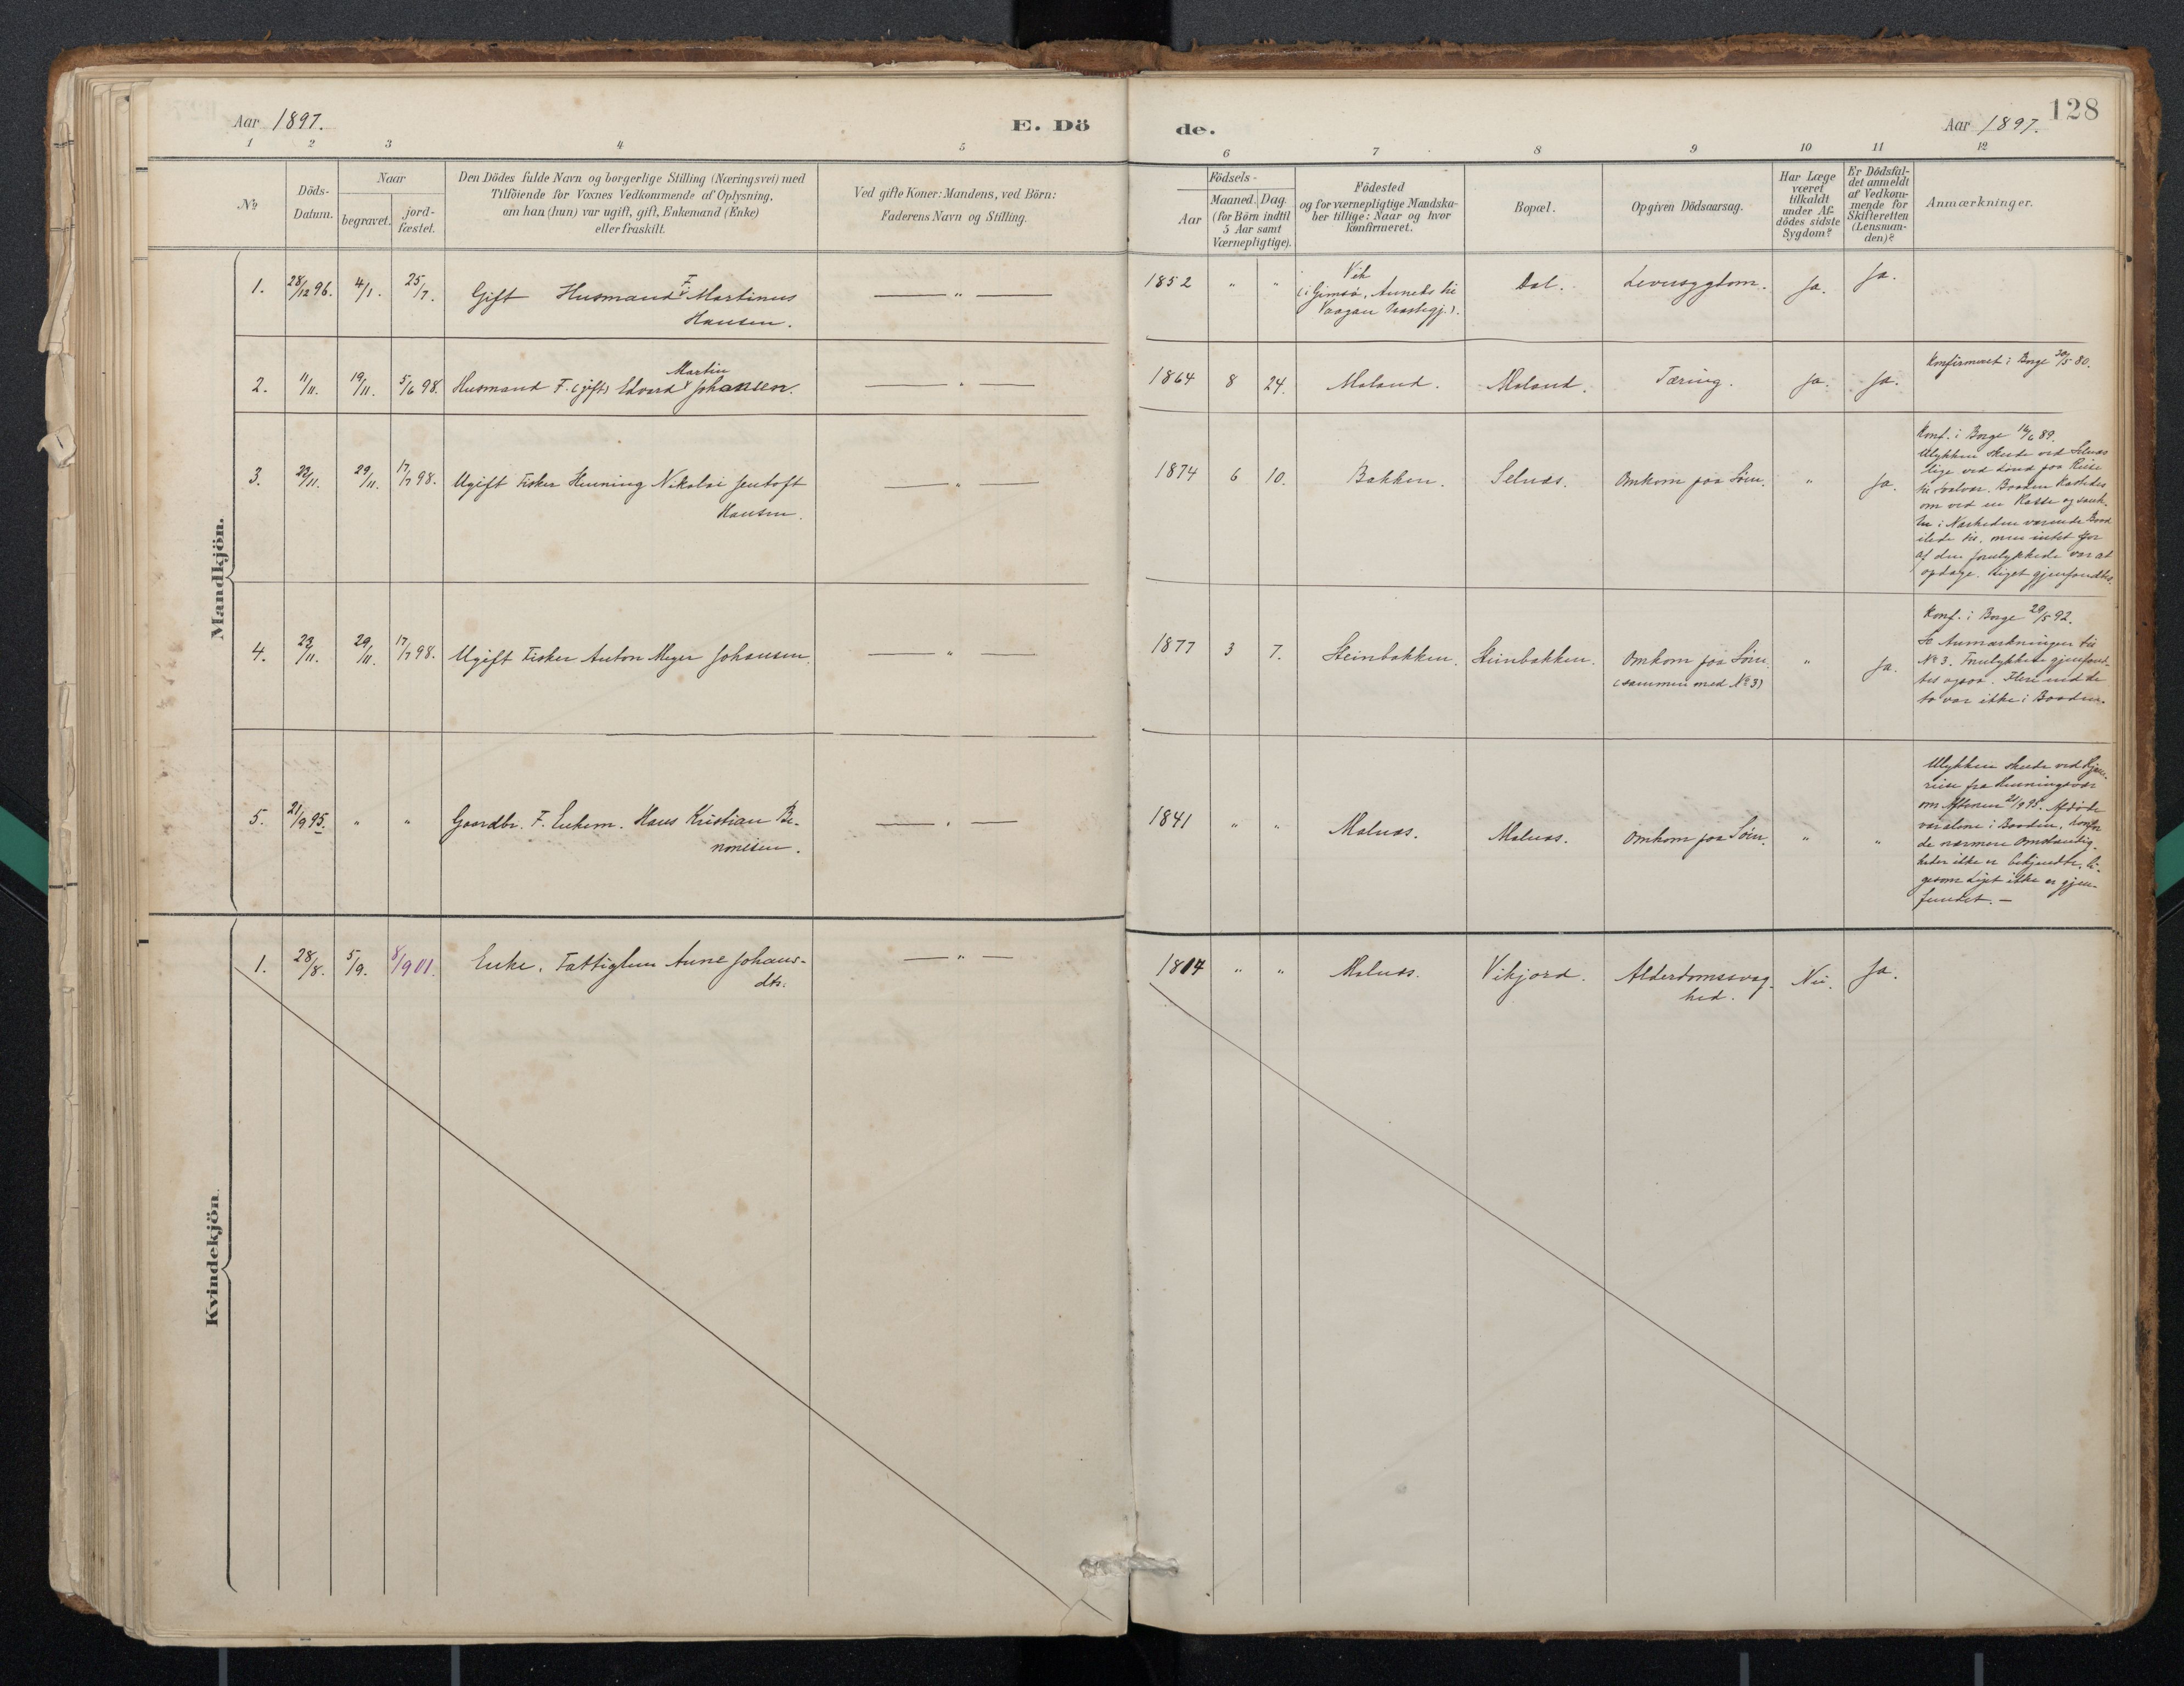 Aar 1897.
E. Dö
de.
Aar 1897.
128
1 2 3 4 5 6 7 8 9 10 11 12
No
Döds-
Datum.
Naar
begravet.
jord-
fæstet.
Den Dödes fulde Navn og borgerlige Stilling (Næringsvei) med
Tilföiende for Voxnes Vedkommende af Oplysning,
om han (hun) var ugift, gift, Enkemand (Enke)
eller fraskilt.
Ved gifte Koner: Mandens, ved Börn:
Faderens Navn og Stilling.
Födsels-
Aar
Maaned. Dag.
(for Börn indtil
5 Aar samt
Værnepligtige).
Födested
og for værnepligtige Mandska-
ber tillige: Naar og hvor
konfirmeret.
Bopæl.
Opgiven Dödsaarsag.
Har Læge
været
tilkaldt
under Af-
dödes sidste
Sygdom?
Er Dödsfal-
det anmeldt
af Vedkom-
mende for
Skifteretten
(Lensman-
den)?
Anmærkninger.
Mandkjön.
1. 28/12 96. 4/1. 25/7. Gift Husmand F. Martinus
Hansen.
— " —
1852 " "
Vik
(i Gimsø, Anneks til
Vaagan Præstegj.).
Dal. Leversygdom. Ja. Ja.
2. 11/11. 19/11. 5/6 98. Husmand F. (gift) Edvard Martin Johansen.
— " —
1864 8 24. Moland. Moland. Tæring. Ja. Ja.
Konfirmeret i Borge 30/5 80.
3. 22/11. 29/11. 17/7 98. Ugift Fisker Henning Nikolai Jentoft
Hansen.
— " —
1874 6 10. Bakken. Selnæs. Omkom paa Søen. " Ja.
Konf. i Borge 16/6 89.
Ulykken skede ved Selnæs
lige ved Land paa Reise
til Svolvær. Baaden kastedes
om ved en Kaste og sank.
En i Nærheden værende Baad
ilede til, men intet
af den forulykkede var at
opdage. Liget gjenfandtes.
4. 23/11. 29/11. 17/7 98. Ugift Fisker Anton Meyer Johansen.
— " —
1877 3 7. Steinbakken. Steinbakken. Omkom paa Søen.
(sammen med No 3)
" Ja.
Konf. i Borge 29/5 92.
Se Anmærkningen til
No 3. Forulykkede gjenfand-
tes ogsaa. Flere end de
to var ikke i Baaden.
5. 21/9 95. " " Gaardbr. F. Enkem. Hans Kristian Be-
nonisen.
— " —
1841 " " Molnæs. Molnæs. Omkom paa Søen. " "
Ulykken skede ved Hjem-
reise fra Henningsvær
om Aftenen 21/9 95. Afdøde
var alene i Baaden, hvorfor
de nærmere Omstændig-
heder ikke er bekjendte, li-
gesom Liget ikke er gjen-
fundet. —
Kvindekjön.
1. 28/8. 5/9. 8/9 01. Enke, Fattiglem Anne Johans-
dtr.
— " —
1814 " " Molnæs. Vikjord. Alderdomssvag-
hed.
Nei. Ja.